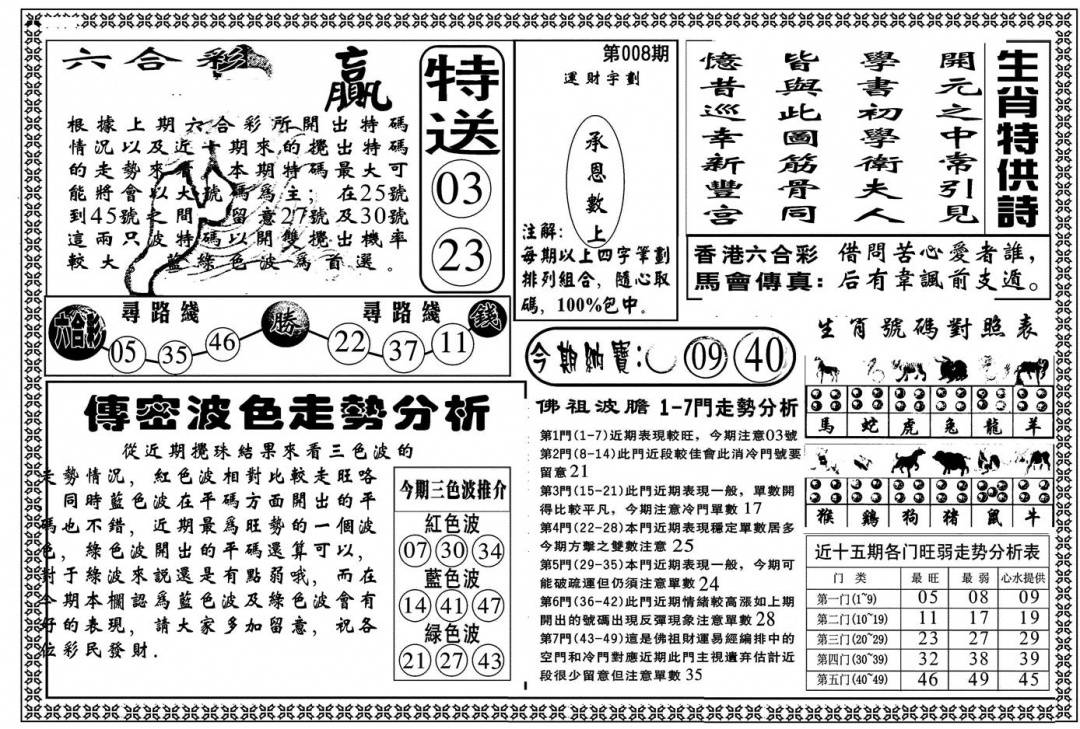 六合彩
贏
根據上期六合彩所開出特碼
情況以及近十期來的攪出特碼
的走勢來 本期特碼最大可
能將會以大號碼爲主; 在25號
到45號之間 留意27號及30號
這兩只波特碼以開雙攪出機率
較大 藍綠色波爲首選。
特送
03
23
第008期
運財字劃
承恩數上
注解:
每期以上四字筆劃
排列組合, 隨心取
碼, 100%包中.
生肖特供詩
開元之中常引見
學書初學衛夫人
皆與此圖筋骨同
憶昔巡幸新豐宮
香港六合彩
馬會傳真:
借問苦心愛者誰,
后有韋諷前支遁。
六合彩
尋路綫
05 35 46
勝
尋路綫
22 37 11
錢
今期納寶: 09 40
傳密波色走勢分析
從近期攪珠結果來看三色波的
走勢情況, 紅色波相對比較走旺咯
同時藍色波在平碼方面開出的平
碼也不錯, 近期最爲旺勢的一個波
色, 綠色波開出的平碼還算可以,
對于綠波來說還是有點弱哦, 而在
今期本欄認爲藍色波及綠色波會有
好的表現, 請大家多加留意, 祝各
位彩民發財.
今期三色波推介
紅色波
07 30 34
藍色波
14 41 47
綠色波
21 27 43
佛祖波膽 1-7門走勢分析
第1門(1-7)近期表現較旺, 今期注意03號
第2門(8-14)此門近段較佳會此消冷門號要
留意21
第3門(15-21)此門近期表現一般, 單數開
得比較平凡, 今期注意冷門單數 17
第4門(22-28)本門近期表現穩定單數居多
今期方擊之雙數注意 25
第5門(29-35)本門近期表現一般, 今期可
能破疏運但仍須注意單數 24
第6門(36-42)此門近期情緒較高漲如上期
開出的號碼出現反彈現象注意單數 28
第7門(43-49)這是佛祖財運易經編排中的
空門和冷門對應近期此門主視遺弃估計近
段很少留意但注意單數 35
生肖號碼對照表
馬 蛇 虎 兔 龍 羊
猴 鷄 狗 猪 鼠 牛
近十五期各门旺弱走势分析表
门 类 最 旺 最 弱 心水提供
第一门(1~9) 05 08 09
第二门(10~19) 11 17 19
第三门(20~29) 23 27 29
第四门(30~39) 32 38 39
第五门(40~49) 46 49 45